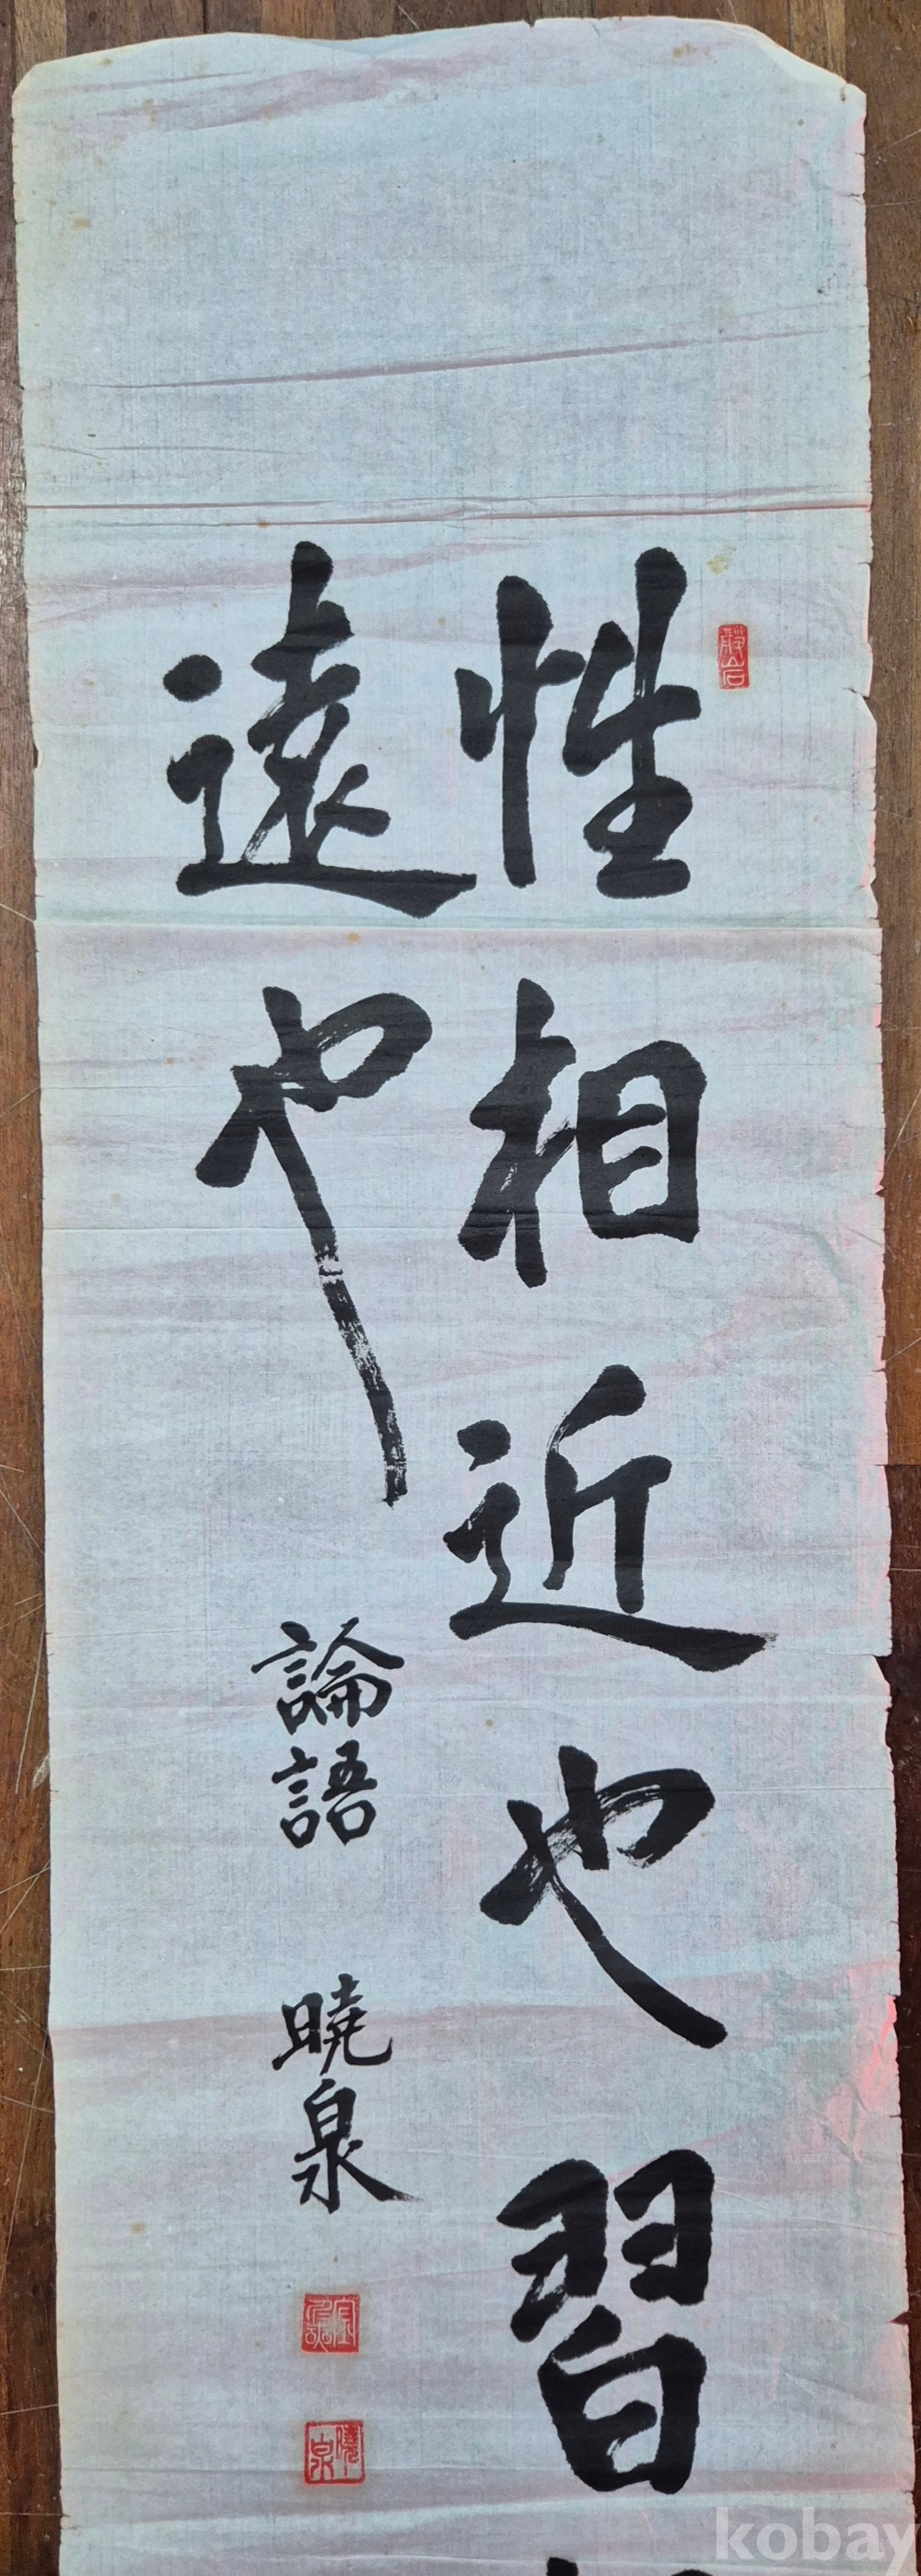 性相近也習
遠也
論語
曉泉
kobay